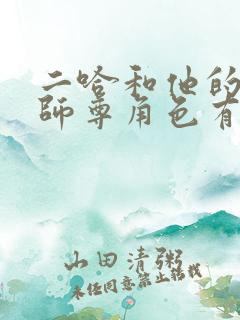 二哈和他的
師尊角色有
山田清粥
未经同意禁止转载